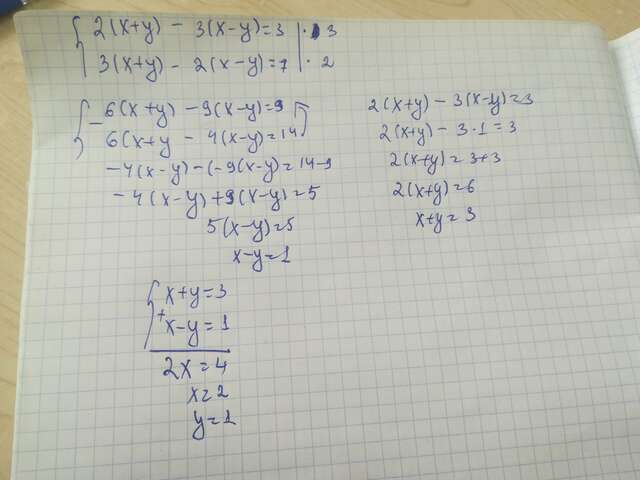 2(x+y) - 3(x-y)=3 | · 3
3(x+y) - 2(x-y)=7 | · 2
6(x+y) - 9(x-y)=9
6(x+y - 4(x-y)=14
-4(x-y)-(-9(x-y)=14-9
-4(x-y)+9(x-y)=5
5(x-y)=5
x-y=1
2(x+y)-3(x-y)=3
2(x+y)-3·1=3
2(x+y)=3+3
2(x+y)=6
x+y=3
x+y=3
+
x-y=1
2x=4
x=2
y=1